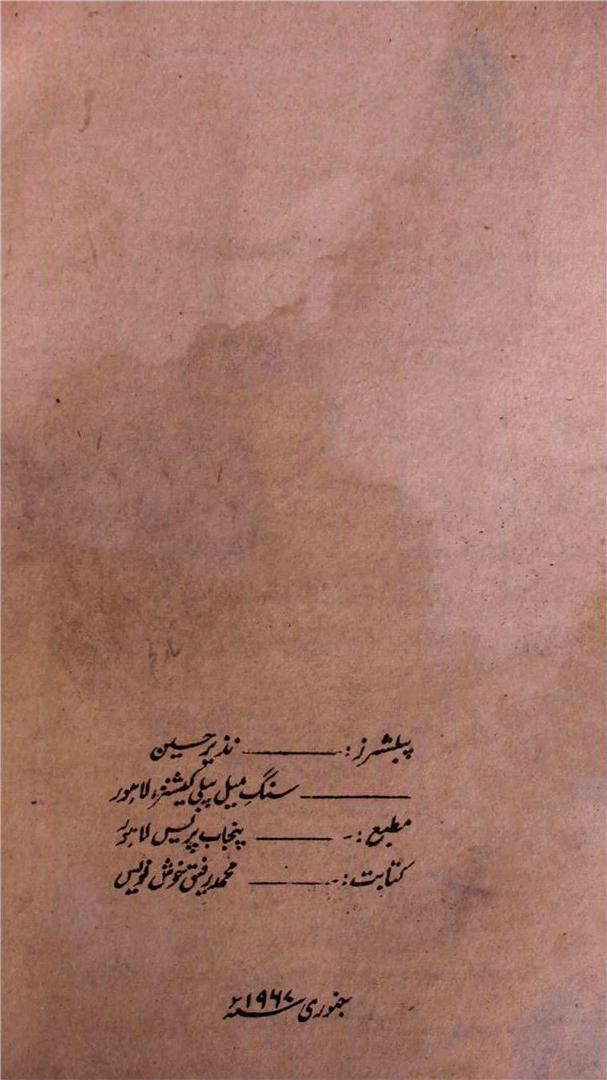 پبلشرز:ـــــــ نذیر حسین
ـــــــ سنگِ میل پبلی کیشنز، لاہور
مطبع:۔ ـــــــ پنجاب پریس لاہور
کتابت:۔ ـــــــ محمد رفیق خوش نویس
جنوری ۱۹۶۷ء